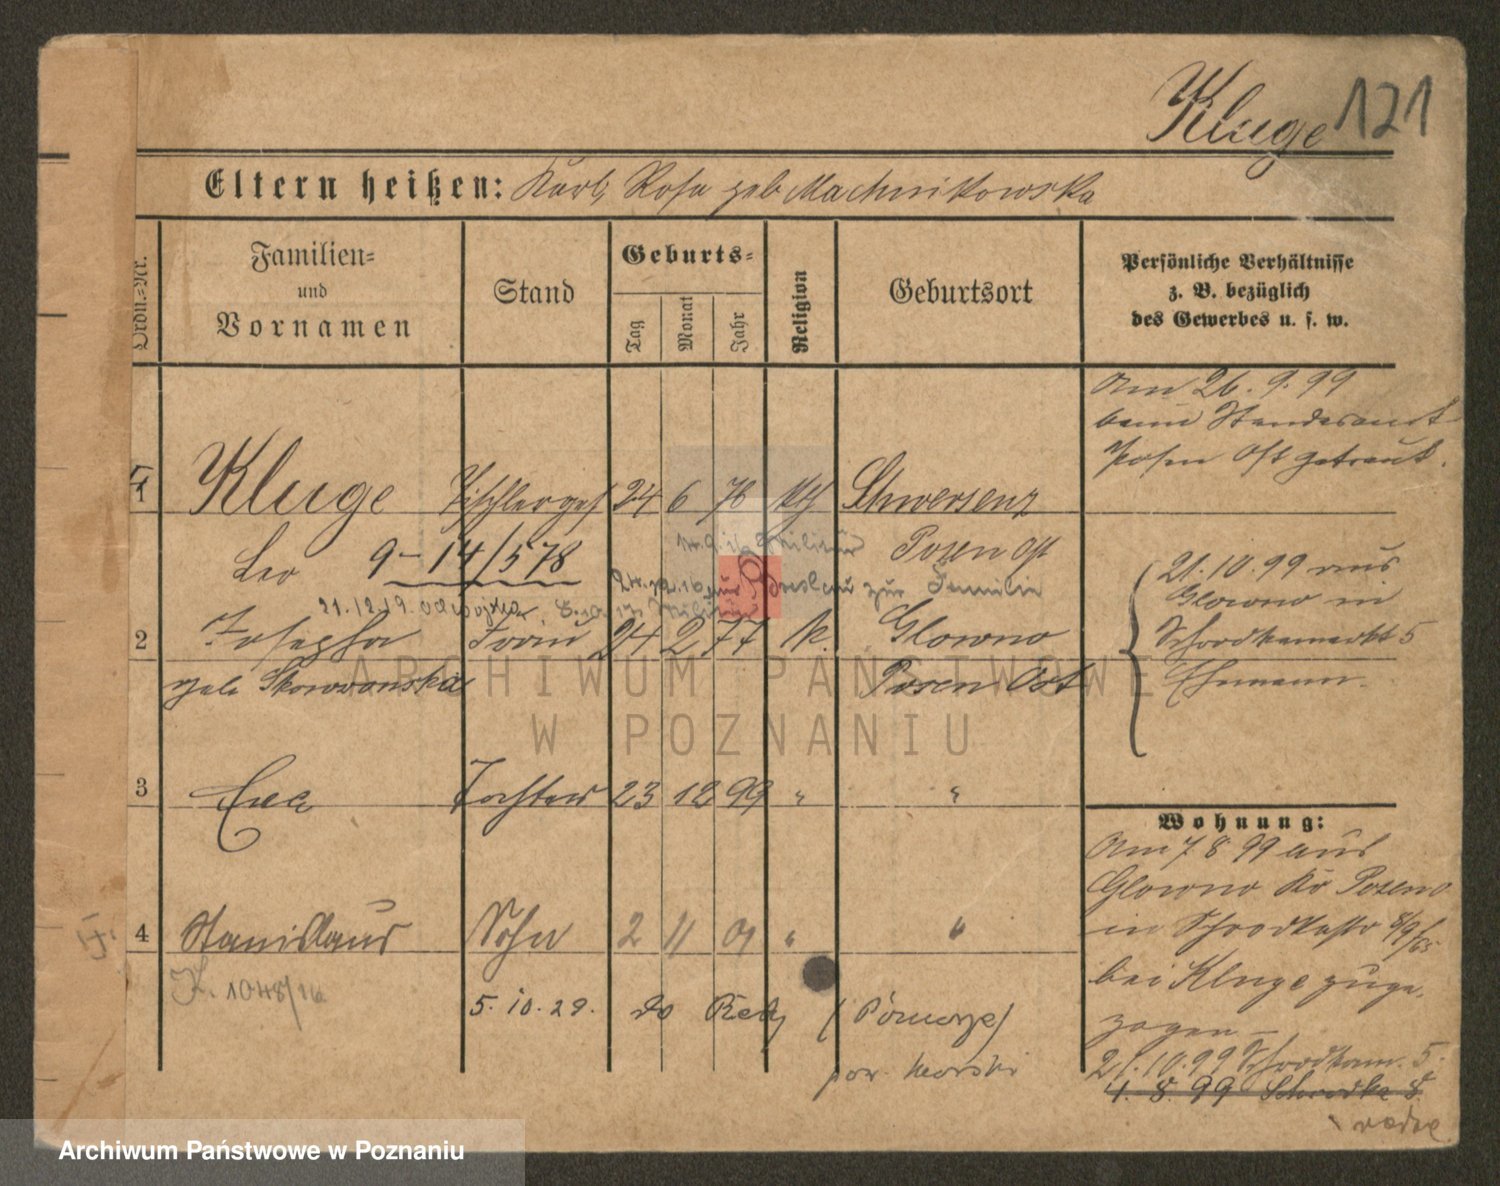 Kluge 121
Eltern heißen: Karl, Rosa geb Machnikowska
Ordn.=Nr.
Familien=
und
Vornamen
Stand
Geburts=
Tag
Monat
Jahr
Religion
Geburtsort
Persönliche Verhältnisse
z. B. bezüglich
des Gewerbes u. s. w.
Am 26. 9. 99
beim Standesamt
Posen Ost getraut.
1 Kluge Tischlerges 24 6 76 kth Schwersenz
Leo 9-14/578 Posen Ost
zur Familie
21.12.19.
2 Josepha Frau 24 2 77 k. Glowno
geb. Skowronska Posen Ost
21.10.99 aus
Glowno in
Schrodkamarkt 5
Ehemann.
3 Eva Tochter 23 12 99 " "
4 Stanislaus Sohn 2 11 01 " "
K. 1048/16
5. 10. 29. do Redy (Pomorze)
pow. morski
Wohnung:
Am 7 8 99 aus
Glowno Kr Posen O
in
bei Kluge zuge-
zogen –
21.10.99 Schrodkam. 5.
4. 8. 99 Schrodka 8.
ARCHIWUM PAŃSTWOWE
W POZNANIU
Archiwum Państwowe w Poznaniu